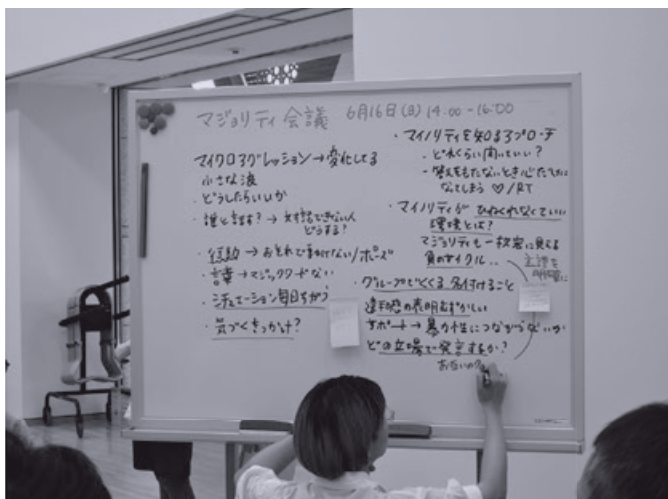 マジョリティ会議 6月16日(日) 14:00-16:00
マイクロアグレッション→変化してる
小さな波
・どうしたらいいか
・誰と話す?→対話できない人
どうする?
・経験→おそれで動けない/ポーズ
・言葉→マジックワードない
・シチュエーション毎日ちがう
・気づくきっかけ?
・マイノリティを知るアプローチ
・どれくらい聞いていい?
・答えをもたないとき
なってしまう ♡/RT
・マイノリティがひねくれなくていい
環境とは?
マジョリティも一枚岩に見える
負のサイクル..
主語を
明確に
・グループでくくる 名付けること
違和感の表明むずかしい
サポート→暴力性につながらないか
どの立場で発言するか?
お互いの